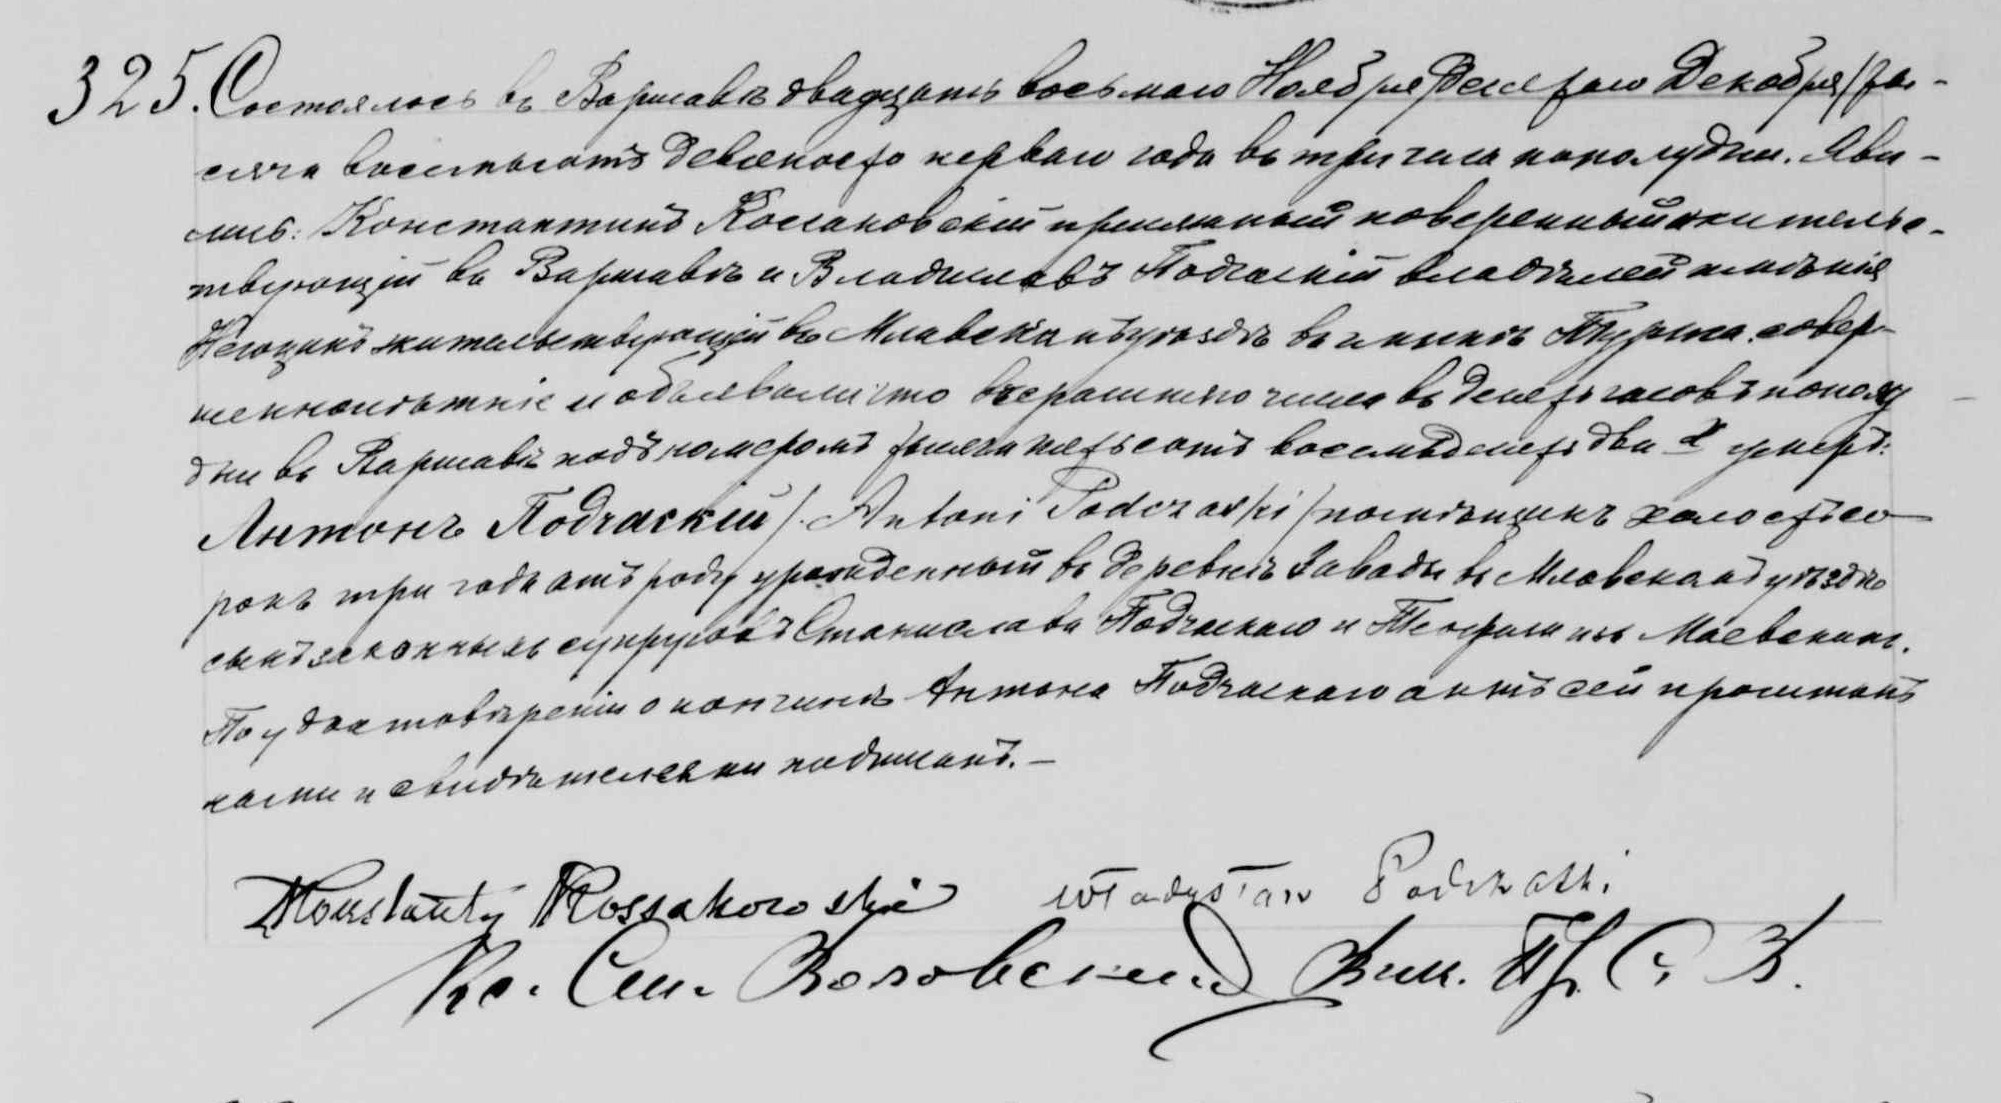 325. Состоялось въ Варшавѣ двадцать восьмого Ноября /десятаго Декабря/ ты-
сяча восемьсотъ девяносто перваго года въ три часа пополудни. Яви-
лись: Константинъ Коссаковскій присяжный повѣренный жительс-
твующій въ Варшавѣ и Владиславъ Подчаскій владѣлецъ имѣнія
жительствующій въ Млавскомъ уѣздѣ въ гминѣ совер-
шеннолѣтніе и объявили что вчерашняго числа въ десять часовъ пополу
дни въ Варшавѣ подъ номеромъ тысяча пятьсотъ восемьдесятъ два умеръ:
Антонъ Подчаскій /Antoni Podczaski/ помѣщикъ холостъ со
рокъ три года отъ роду урожденный въ деревнѣ Завады въ Млавскомъ уѣздѣ
сынъ законныхъ супруговъ Станислава Подчаскаго и Теофили изъ Маевскихъ.
По удостовѣреніи о кончинѣ Антона Подчаскаго актъ сей прочитанъ
нами и свидѣтелями подписанъ. —
Konstanty Kossakowski Władysław Podczaski
Кс.